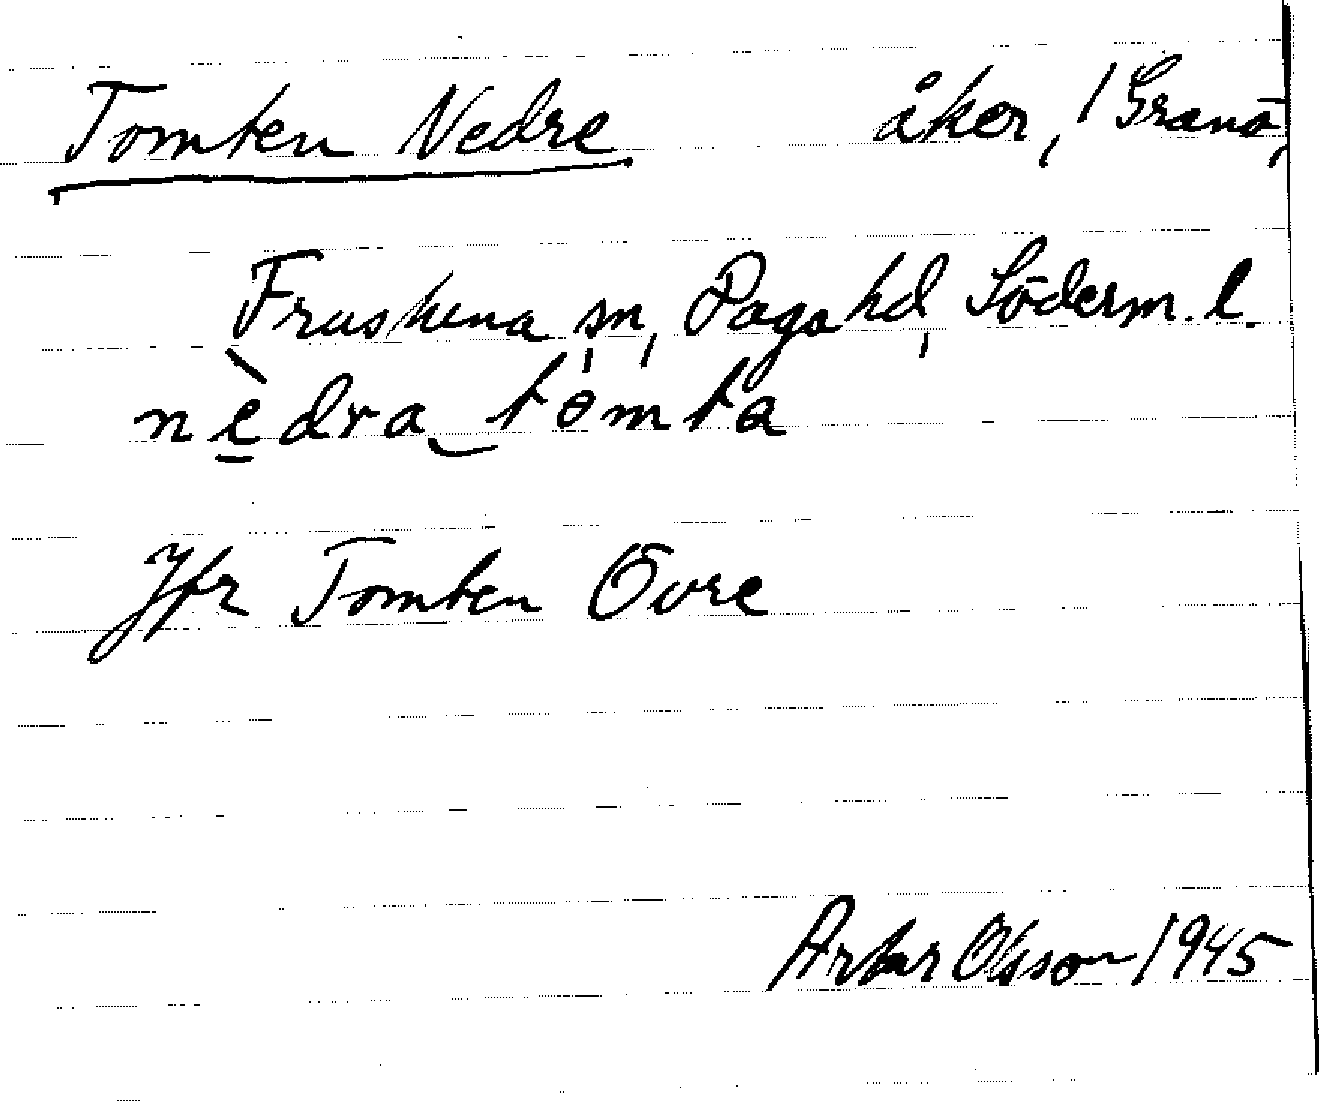 Tomten Nedre åker, 1 Granö,
Fruskuna sn, Daga hd, Söderm. l.
nèdra tomta
Jfr Tomten Övre
Artur Olsson 1945